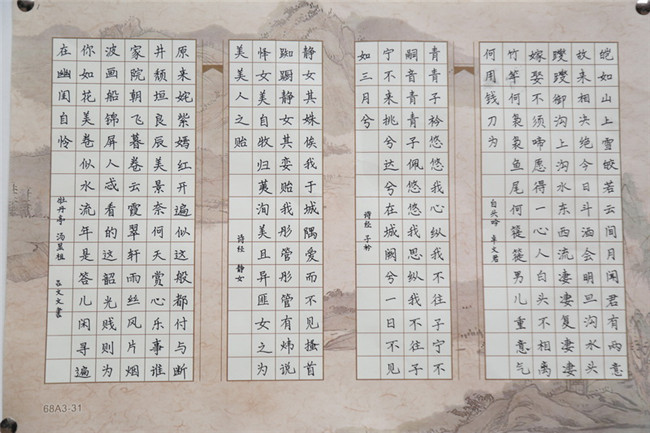 皑如山上雪皎若云间月闻君有两意
故来相决绝今日斗酒会明旦沟水头
躞蹀御沟上沟水东西流凄凄复凄凄
嫁娶不须啼愿得一心人白头不相离
竹竿何袅袅鱼尾何簁簁男儿重意气
何用钱刀为
白头吟 卓文君
青青子衿悠悠我心纵我不往子宁不
嗣音青青子佩悠悠我思纵我不往子
宁不来挑兮达兮在城阙兮一日不见
如三月兮
诗经 子衿
静女其姝俟我于城隅爱而不见搔首
踟蹰静女其娈贻我彤管彤管有炜说
怿女美自牧归荑洵美且异匪女之为
美美人之贻
诗经 静女
原来姹紫嫣红开遍似这般都付与断
井颓垣良辰美景奈何天赏心乐事谁
家院朝飞暮卷云霞翠轩雨丝风片烟
波画船锦屏人忒看的这韶光贱则为
你如花美眷似水流年是答儿闲寻遍
在幽闺自怜
牡丹亭 汤显祖
文文書
68A3-31